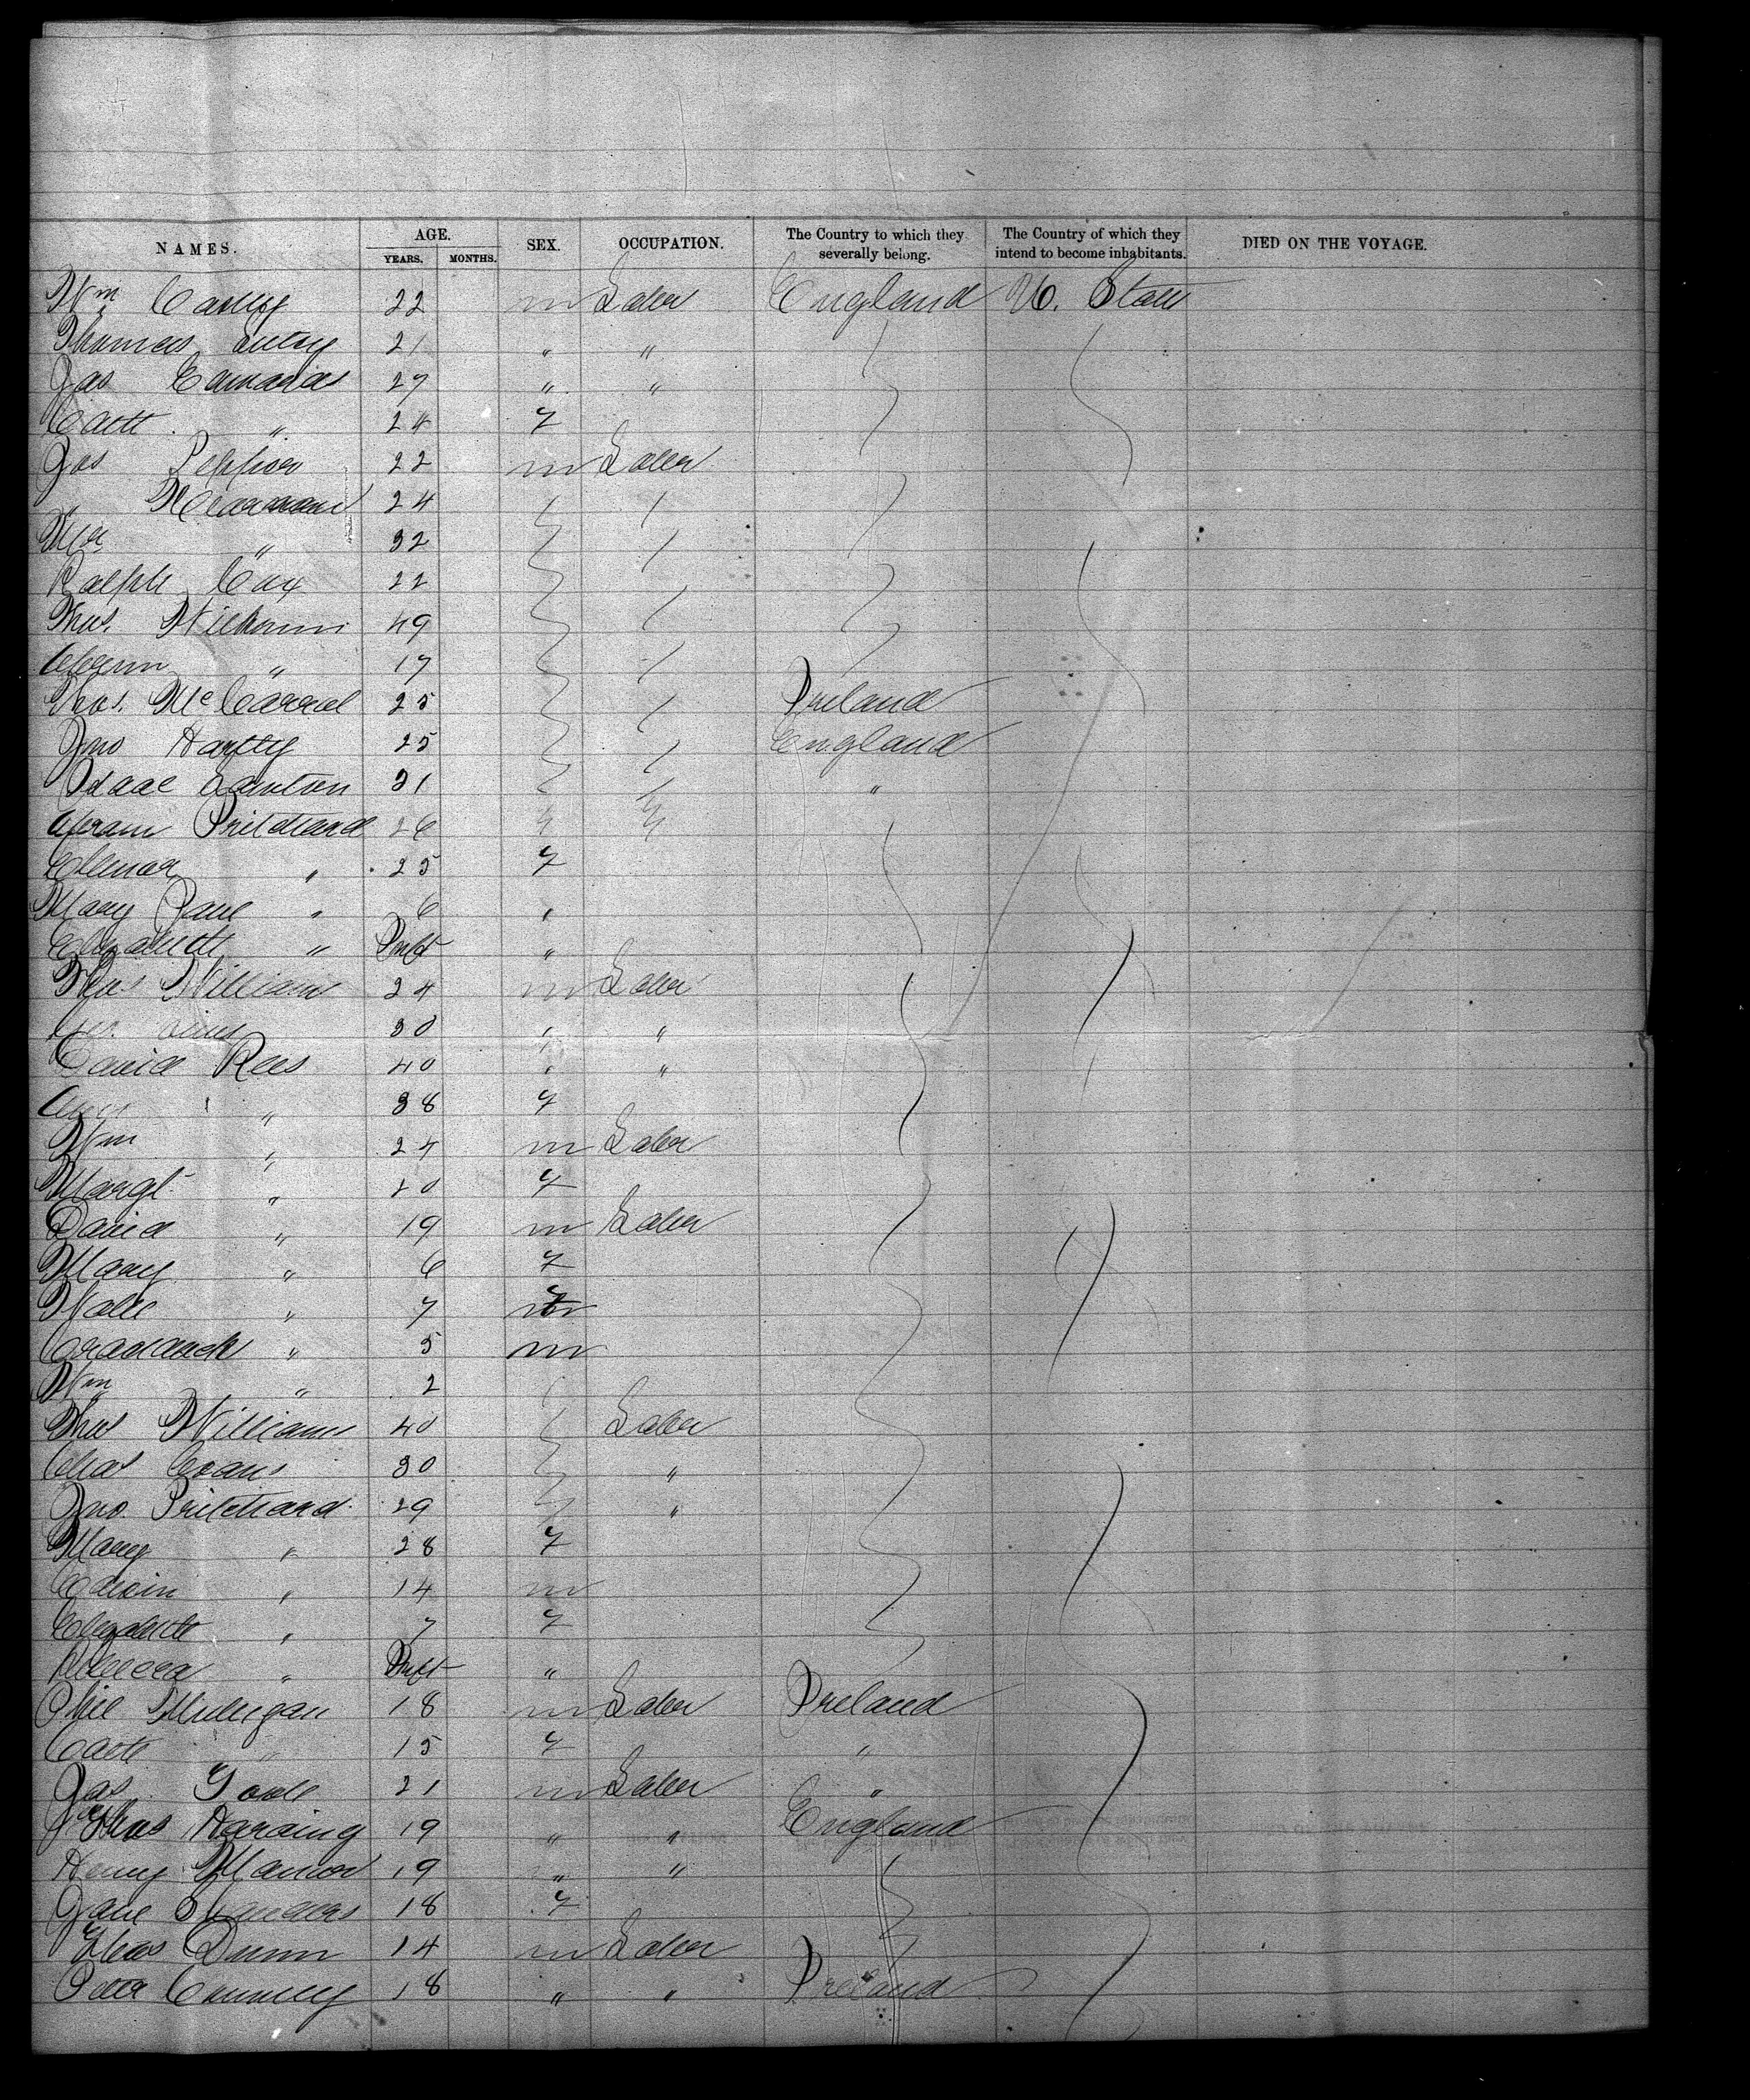 NAMES. AGE. YEARS. MONTHS. SEX. OCCUPATION. The Country to which they severally belong. The Country of which they intend to become inhabitants. DIED ON THE VOYAGE.
Wm 22 m Labor England U. States
Thomas 21 " "
Jas 27 " "
Cath " 24 f
Jas 22 m Labor
" 24
" 32
Ralph Cox 22
Thos. 49
" 17
Thos. McCarrol 25 Ireland
Jno Hartly 25 England
Isaac 31 "
Abram Pritchard 26
Ellenor " 25 f
Mary Jane " 6 "
Elizabeth " Inft "
Thos Williams 24 m Labor
30 " "
David Rees 40 " "
Ann " 38 f
Wm " 24 m Labor
Margt " 20 f
David " 19 m Labor
Mary " 6 f
" 7
" 5 m
Wm " 2
Thos Williams 40 Labor
Chas Evans 30 "
Jno. Pritchard 29 "
Mary " 28 f
Edwin " 14 m
Elizabeth " 7 f
Rebecca " Inft "
Phil Mulligan 18 m Labor Ireland
Cath " 15 f "
Jas 21 m Labor "
Thos Harding 19 " " England
Henry 19 " "
Jane 18 f
Thos Dunn 14 m Labor
Peter Connolly 18 " " Ireland